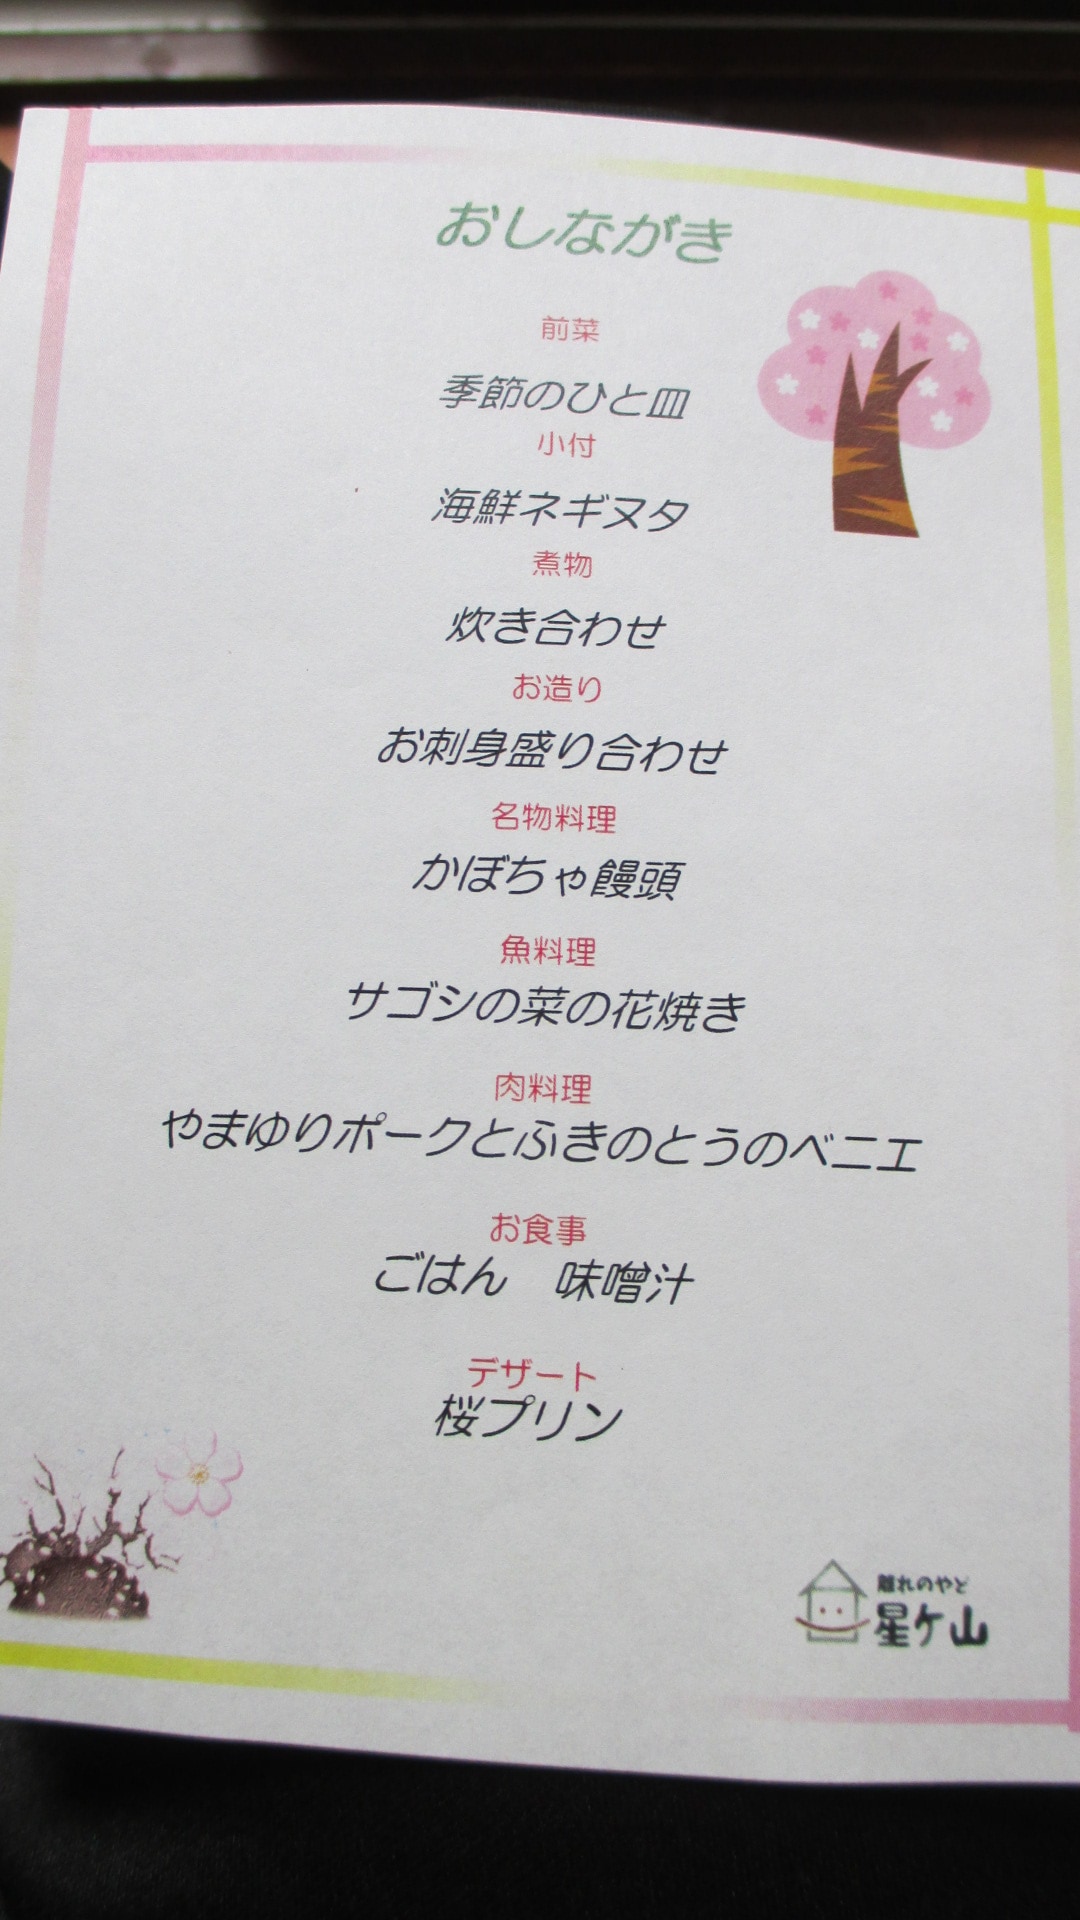 おしながき
前菜
季節のひと皿
小付
海鮮ネギヌタ
煮物
炊き合わせ
お造り
お刺身盛り合わせ
名物料理
かぼちゃ饅頭
魚料理
サゴシの菜の花焼き
肉料理
やまゆりポークとふきのとうのベニエ
お食事
ごはん　味噌汁
デザート
桜プリン
離れのやど
星ケ山